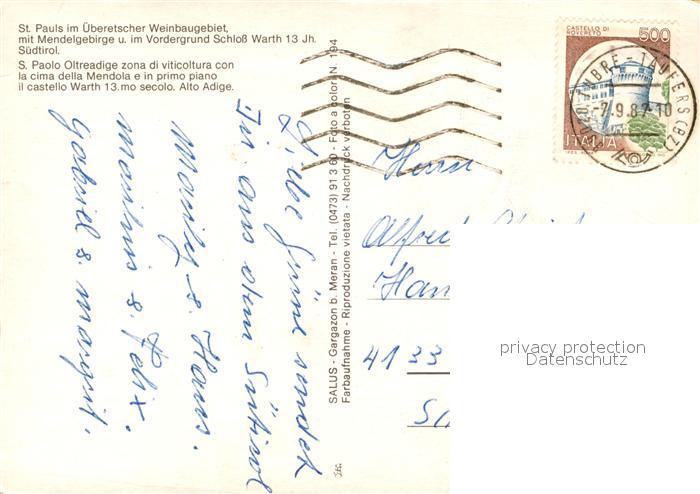 St. Pauls im Überetscher Weinbaugebiet,
mit Mendelgebirge u. im Vordergrund Schloß Warth 13 Jh.
Südtirol.
S. Paolo Oltreadige zona di viticoltura con
la cima della Mendola e in primo piano
il castello Warth 13.mo secolo. Alto Adige.
Liebe Grüße sendet
aus dem Sütirol
Hans.
s. Felix.
Gabriel s. margrit.
SALUS - Gargazon b. Meran - Tel. (0473) 91 3 60 - Foto a color N. 194
Farbaufnahme - Riproduzione vietata - Nachdruck verboten
CASTELLO DI
ROVERETO
500
ITALIA
TUBRE TAUFERS (BZ)
-7.9.87-10
Herrn
Alfred
4133
privacy protection
Datenschutz